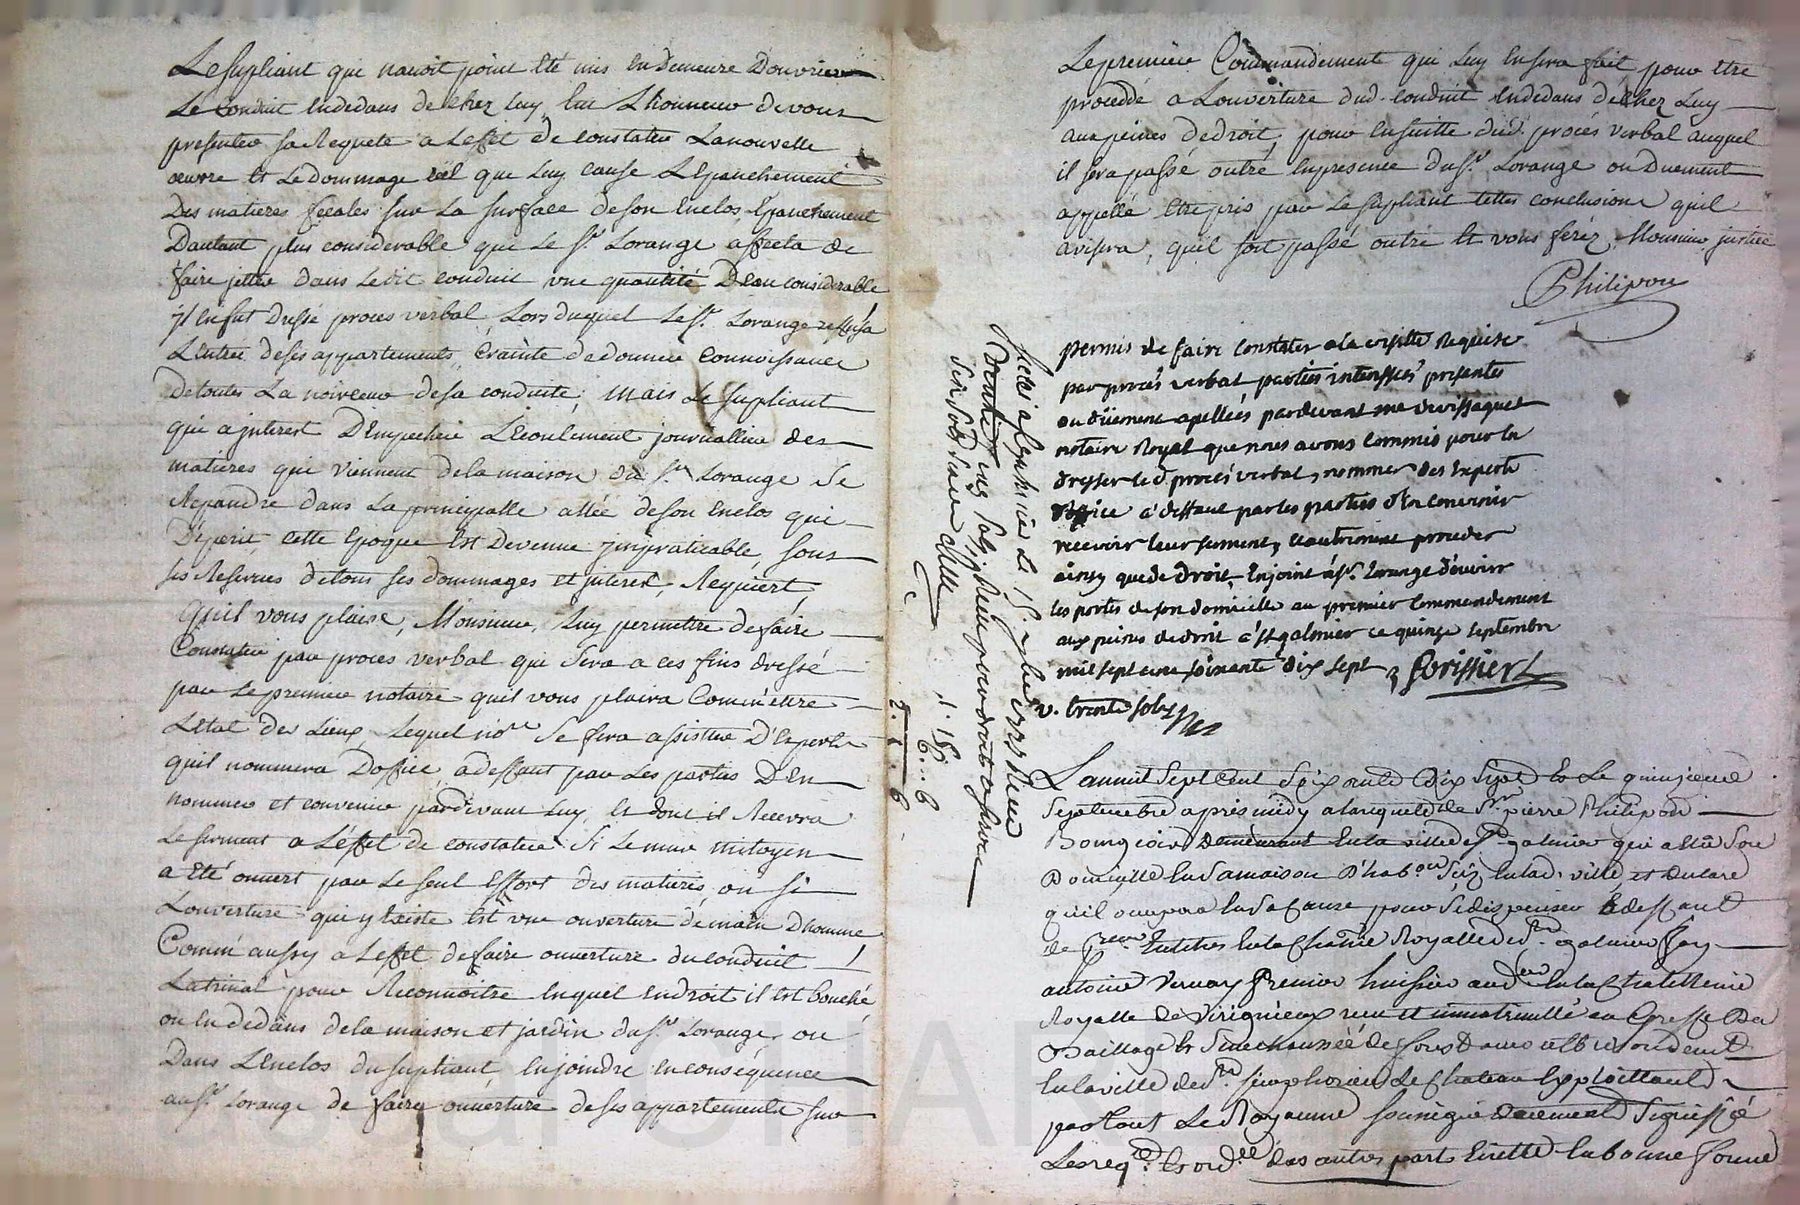 Le supliant que navoit point eté mis en demeure Douvrir
Le conduit en dedans de chez luy a Lhonneur de vous
presenter sa Requete a Leffet de constater La nouvelle
œuvre et Le dommage réél que luy cause L'Epanchement
Des matieres fécales sur La surface de son Enclos Epanchement
Dautant plus considerable que le Sr. Lorange affecta de
faire jetter dans Le dit conduit une quantité D'eau considerable
jl en fut Dressé proces verbal Lors duquel Le Sr. Lorange reffusa
L'entrée de ses appartements Crainte de donner Connoissance
de toutes La noirceur de sa conduite; mais Le supliant
qui a jnterest D'Empecher L'ecoulement journallier des
matieres qui viennent de la maison du Sr. Lorange se
Repandre dans La principalle allée de son Enclos qui
Déperit, cette Epoque Est Devenue jmpraticable, sous
ses Reserves de tous ses dommages et jnterest, Requiert
Quil vous plaise, Monsieur, Luy permettre de faire
Constater par proces verbal qui sera a ces fins dressé
par Le premier notaire quil vous plaira Commettre
Letat des Lieux, Lequel nore se fera assister D'Experts
quil nommera Doffice, a deffaut par Les parties D'en
nommer et convenir pardevant luy, et dont il Recevra
Le serment a L'éffet de constater Si Le mur mitoyen
a Eté ouvert par Le seul Effort des matieres, ou si
Louverture qui y Existe Est une ouverture de main D'homme
Comm' aussy a Leffet de faire ouverture du conduit
Latrinal pour Reconnoitre En quel Endroit il Est bouché
ou En dedans de la maison et jardin du Sr. Lorange, ou
Dans L'Enclos du supliant, Enjoindre En conséquence
au Sr. Lorange de faire ouverture de ses appartements sur
Le premier Commandement qui Luy En sera fait pour Etre
procedé a Louverture dud. conduit En dedans de chez Luy
aux peines de droit, pour En suitte dud. procés verbal auquel
il sera passé outre En presence du Sr. Lorange ou Duement
appellé Etre pris par Le supliant telles conclusions quil
avisera, quil soit passé outre Et vous ferez, Monsieur, justice
Philipon
permis de faire Constater a la visitte Requise
par procés verbal parties interessées presentes
ou düement apellées pardevant me
notaire Royal que nous avons Commis pour En
dresser le d procés verbal, nommer des Experts
d'office a deffaut par les parties d'En Convenir
recevoir leur serment, Et autrement proceder
ainsy que de droit Enjoint au Sr. Lorange d'ouvrir
les portes de son domicille au premier Commendement
aux peines de droit a St galmier ce quinze Septembre
mil sept cent soixante dix sept
v. trente sols
Controllé a St galmier Le 15 7bre
Reçu
Six sols
1. 15. 6
6
2. 1. 6
L'an mil Sept Cent Soixante Dix Sept Et Le quinzieme
Septembre apres midy a la requete de Sr. pierre Philipon
Bourgeois Demeurant En la ville de St. galmier qui a Elû Son
Domicille En Sa maison D'habon. Size En lad. ville, et declare
quil occupera En Sa Cause pour
Royalle de St. galmier
antoine Vernay premier huissier En la Chatellenie
Royalle de Virignieux receu et immatriculé au Greffe Du
Baillage Et Senechaussée de forest
En la ville de St. Simphorien Le Chateau Exploittant
partout Le Royaume Soussigné duement Signiffié
Les reqte. Et ordce. des autres parts En bonne forme